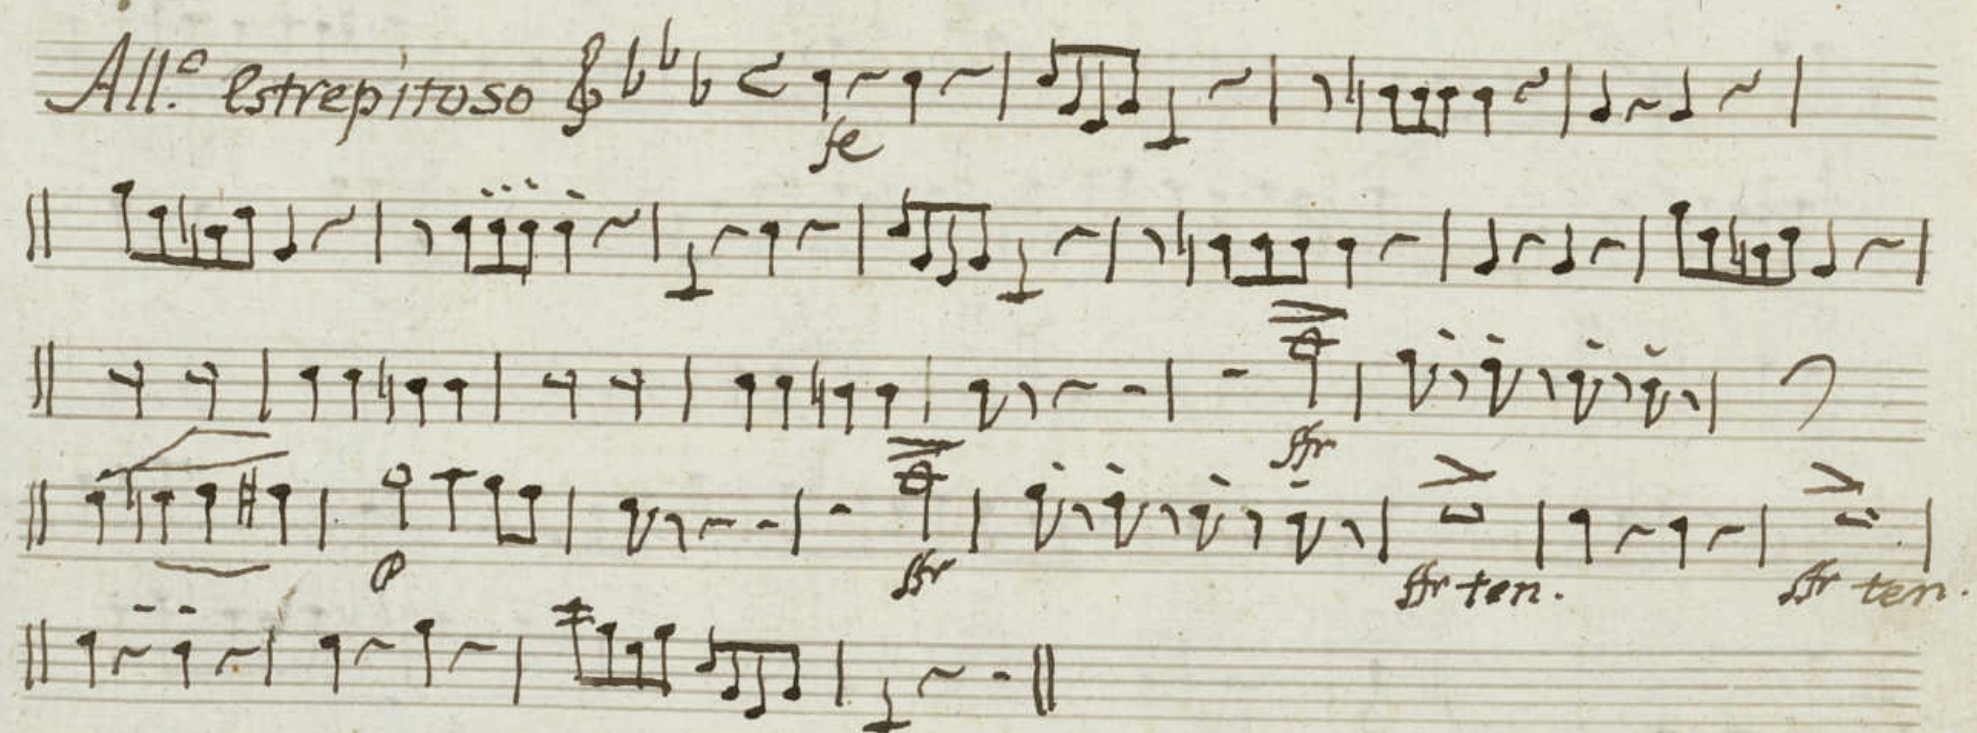 All.º estrepitoso
fe
ffr
P
ffr
ffr ten.
ffr ten.